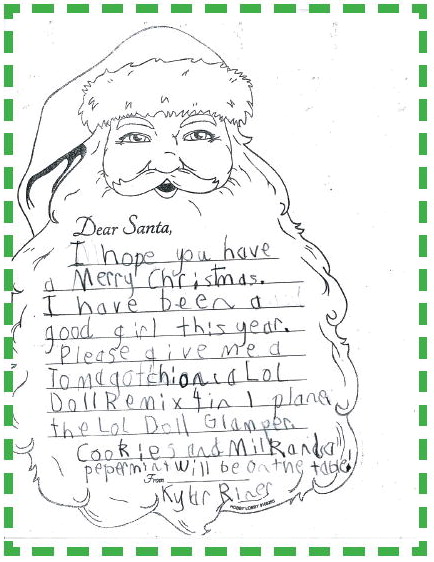 Dear Santa,
I hope you have
a Merry Christmas.
I have been a
good girl this year.
Please give me a
Tomagotchi on a Lol
Doll Remix 4 in 1 plane
the LoL Doll Glamper.
Cookies and Milk and a
pepermint will be on the table!
From